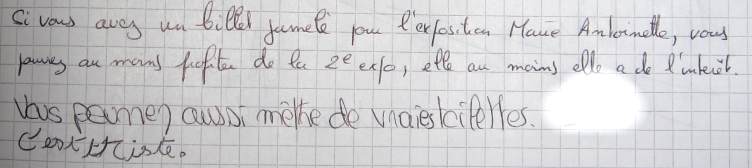 Si vous avez un billet jumelé pour l'exposition Marie Antoinette, vous
pouvez au moins profiter de la 2e expo, elle au moins elle a de l'intérêt.
Vous pouvez aussi mettre de vraies toilettes.
C'est triste.